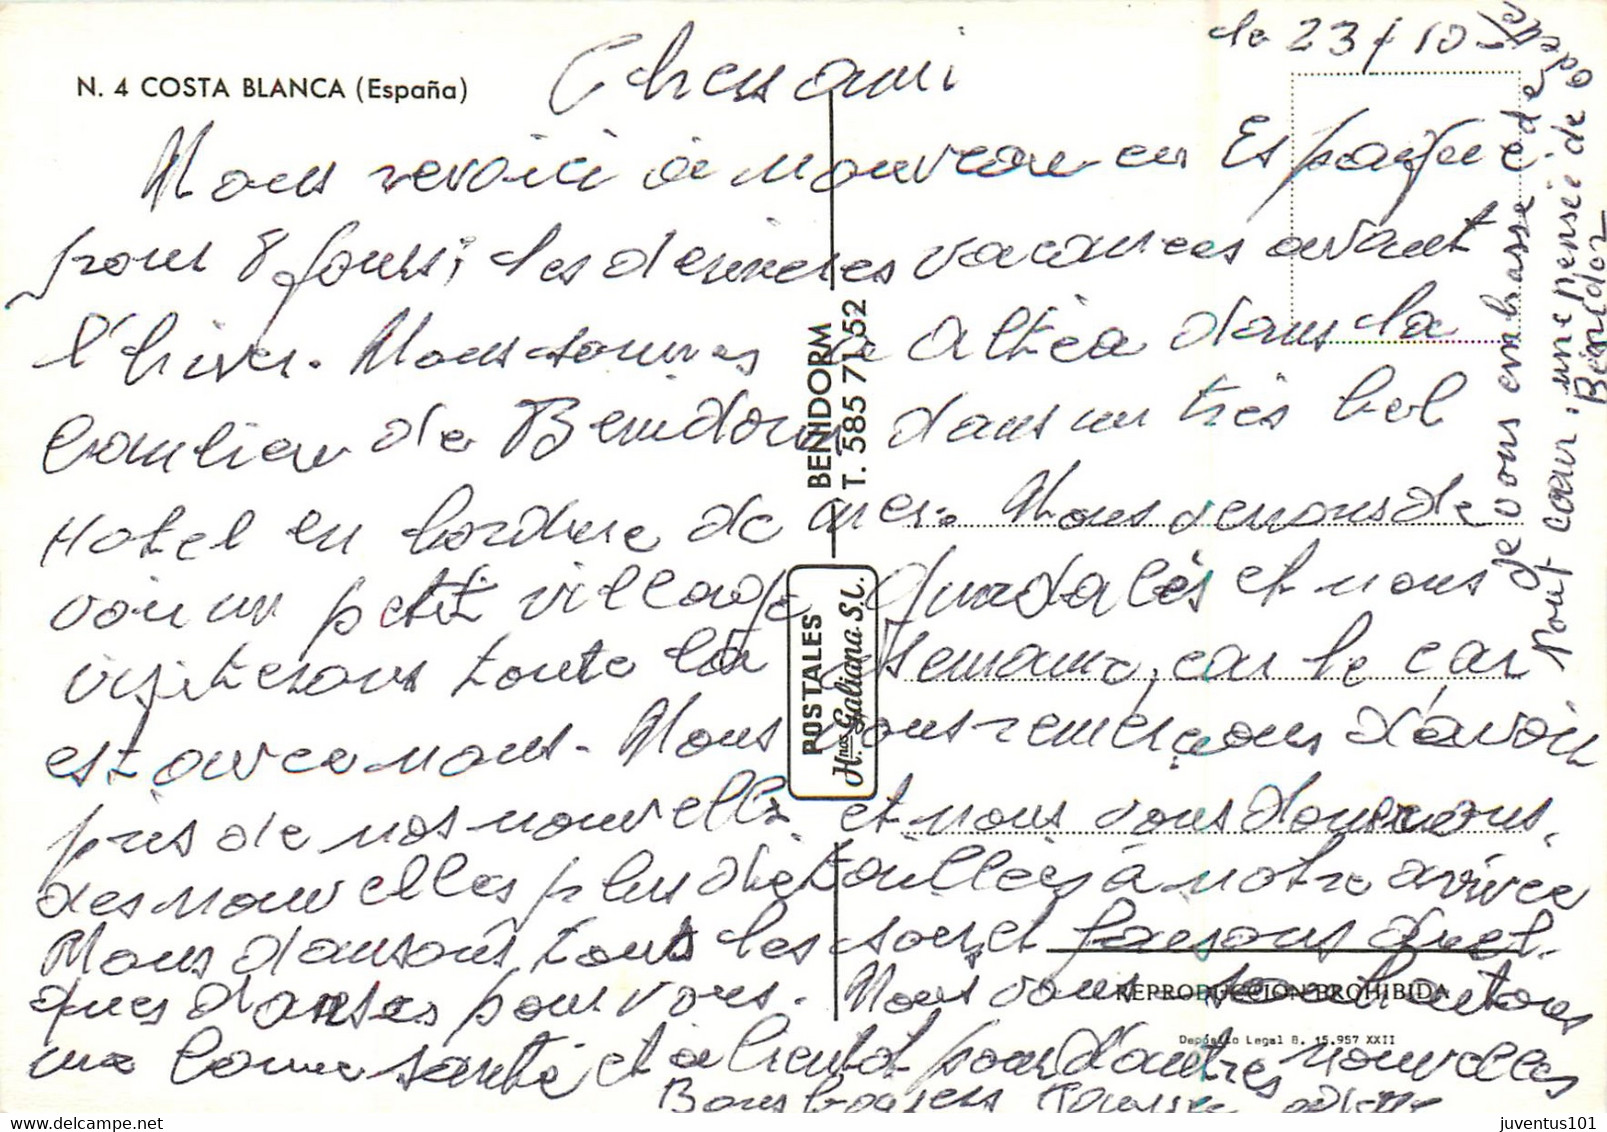 N. 4 COSTA BLANCA (España)
le 23/10
Chers amis
Nous revoici à nouveau en Espagne
pour 8 jours, les dernières vacances avant
l'hiver. Nous sommes à Altéa dans la
banlieue de Benidorm dans un très bel
Hotel en bordure de mer. Nous venons de
voir un petit village Guadalès et nous
visiterons toute la semaine, car le car
est avec nous. Nous vous remercions d'avoir
pris de nos nouvelles et nous vous donnerons
des nouvelles plus détaillées à notre arrivée
Nous dansons tous les soirs et faisons quel-
ques danses pour vous. Nous vous souhaitons
une bonne santé et à bientôt pour d'autres nouvelles
Bons baisers
Je vous embrasse de
tout cœur, une pensée de
Bénidor
BENIDORM
T. 585 71 52
POSTALES
H.nos Galiana S.L.
REPRODUCCION PROHIBIDA
Depósito Legal B. 15.957 XXII
juventus101